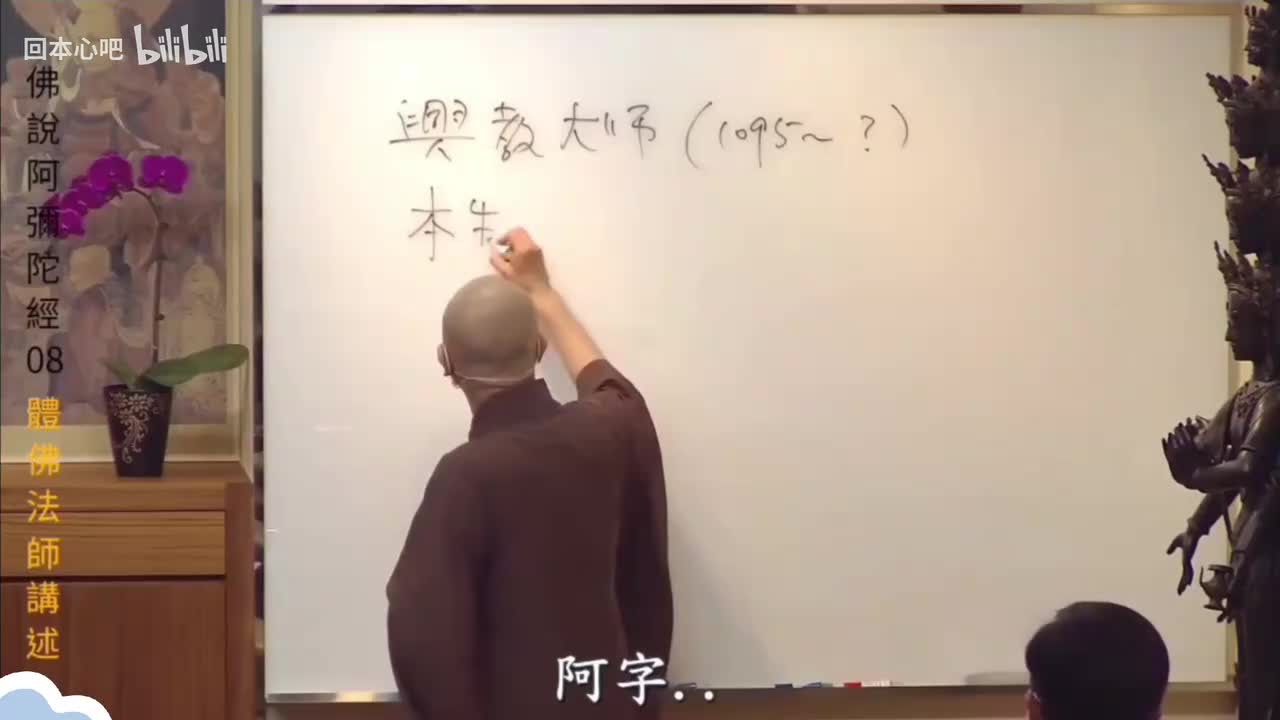 回本心吧 bilibili
佛說阿彌陀經08 體佛法師講述
興教大师(1095~ ?)
本
阿字..